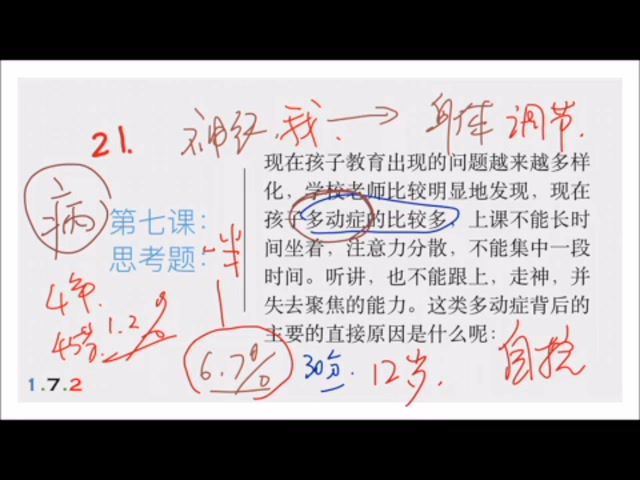 21. 神经.我.→身体 调节.
现在孩子教育出现的问题越来越多样
化，学校老师比较明显地发现，现在
孩子多动症的比较多，上课不能长时
间坐着，注意力分散，不能集中一段
时间。听讲，也不能跟上，走神，并
失去聚焦的能力。这类多动症背后的
主要的直接原因是什么呢：
病
第七课：
思考题：
一半
4年.
45分.
1.2%
6.7%
30分.
12岁.
自控
1.7.2